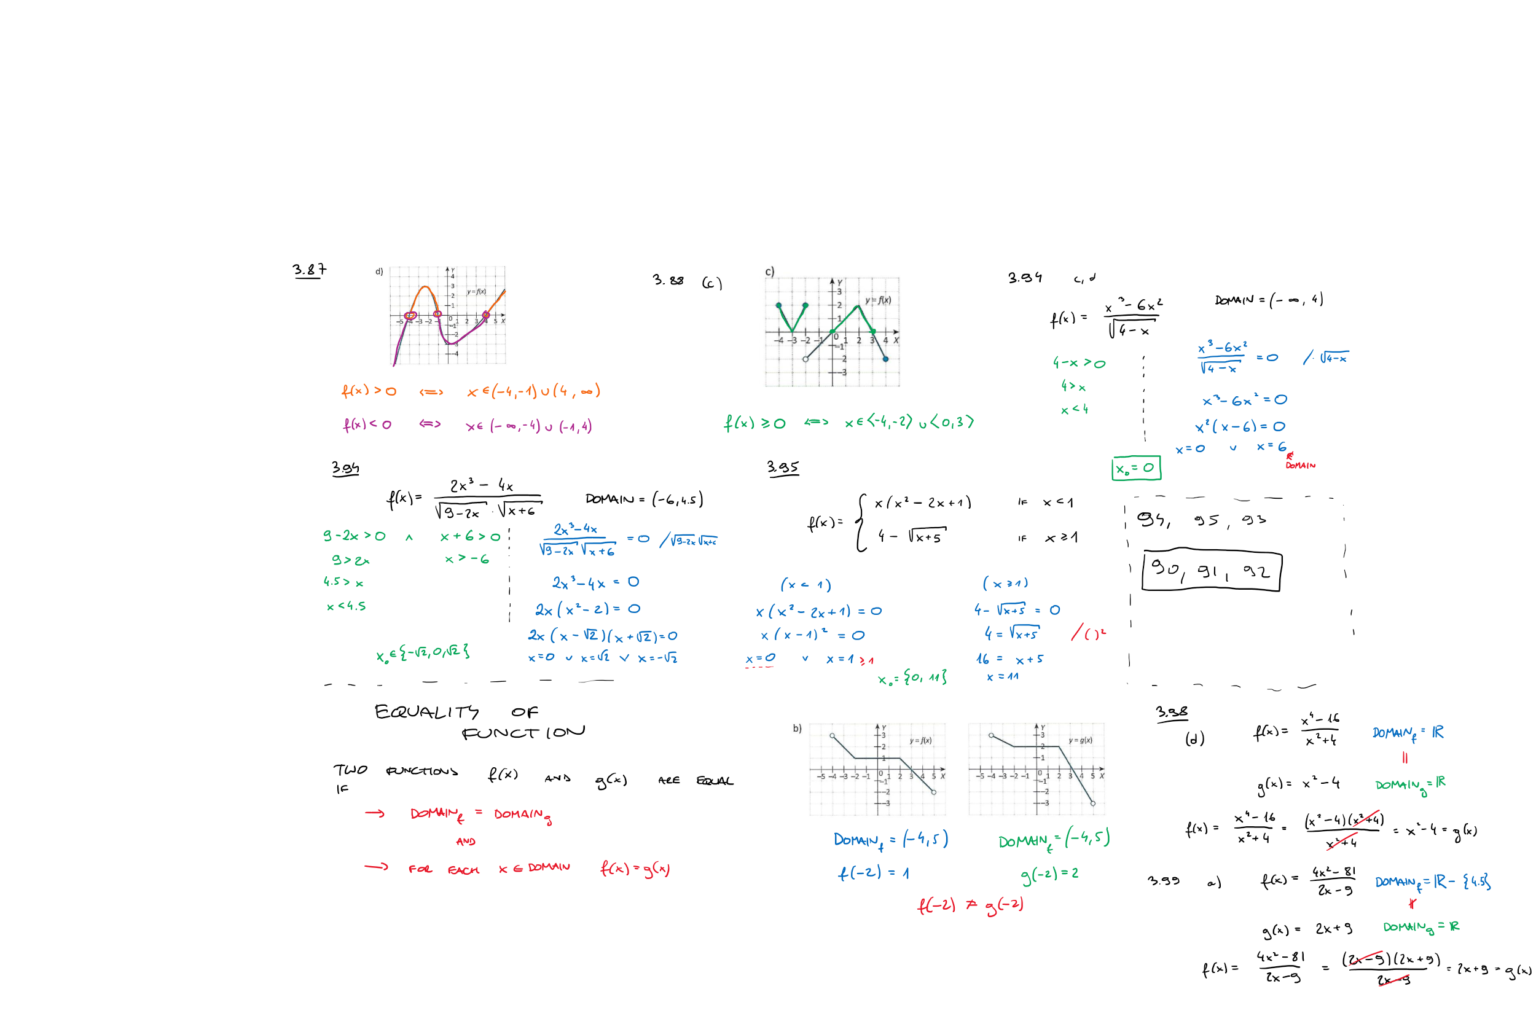 3.87
d)
y=f(x)
f(x) > 0 <=> x ∈ (-4,-1) ∪ (4, ∞)
f(x) < 0 <=> x ∈ (-∞,-4) ∪ (-1,4)
3.88 (c)
c)
y=f(x)
f(x) ≥ 0 <=> x ∈ <-4,-2> ∪ <0,3>
3.94 c, d
f(x) = (x³ - 6x²)/√(4-x) DOMAIN = (-∞, 4)
4-x > 0
4 > x
x < 4
(x³-6x²)/√(4-x) = 0 /·√(4-x)
x³-6x² = 0
x²(x-6) = 0
x=0 ∨ x=6
DOMAIN
x₀ = 0
3.94
f(x) = (2x³ - 4x)/(√(9-2x) · √(x+6)) DOMAIN = (-6,4.5)
9-2x > 0 ∧ x+6 > 0
9 > 2x x > -6
4.5 > x
x < 4.5
(2x³-4x)/(√(9-2x) √(x+6)) = 0 /√(9-2x) √(x+6)
2x³-4x = 0
2x(x²-2) = 0
2x(x-√2)(x+√2) = 0
x=0 ∨ x=√2 ∨ x=-√2
x₀ ∈ {-√2,0,√2}
3.95
f(x) = { x(x² - 2x+1) IF x < 1
4 - √(x+5) IF x ≥ 1
(x < 1)
x(x²-2x+1) = 0
x(x-1)² = 0
x=0 ∨ x=1 ≥1
(x ≥ 1)
4-√(x+5) = 0
4 = √(x+5) /( )²
16 = x+5
x = 11
x₀ = {0, 11}
94, 95, 93
90, 91, 92
EQUALITY OF
FUNCTION
TWO FUNCTIONS f(x) AND g(x) ARE EQUAL
IF
→ DOMAIN_f = DOMAIN_g
AND
→ FOR EACH x ∈ DOMAIN f(x) = g(x)
b)
y=f(x)
y=g(x)
DOMAIN_f = (-4,5)
DOMAIN_f = (-4,5)
f(-2) = 1
g(-2) = 2
f(-2) ≠ g(-2)
3.98
(d)
f(x) = (x⁴-16)/(x²+4) DOMAIN_f = ℝ
=
g(x) = x²-4 DOMAIN_g = ℝ
f(x) = (x⁴-16)/(x²+4) = (x²-4)(x²+4)/(x²+4) = x²-4 = g(x)
3.99 a) f(x) = (4x²-81)/(2x-9) DOMAIN_f = ℝ - {4.5}
≠
g(x) = 2x+9 DOMAIN_g = ℝ
f(x) = (4x²-81)/(2x-9) = (2x-9)(2x+9)/(2x-9) = 2x+9 = g(x)